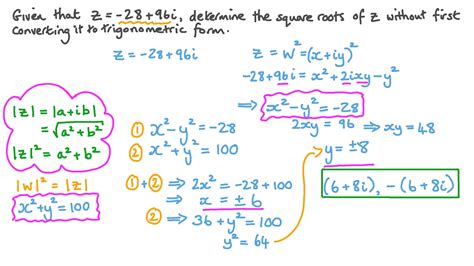 Given that z = -28 + 96i, determine the square roots of z without first
converting it to trigonometric form.
z = -28 + 96i
z = w² = (x + iy)²
-28 + 96i = x² + 2ixy - y²
⇒ x² - y² = -28
2xy = 96 ⇒ xy = 48
|z| = |a + ib|
= √(a² + b²)
|z|² = a² + b²
|w|² = |z|
x² + y² = 100
① x² - y² = -28
② x² + y² = 100
① + ② ⇒ 2x² = -28 + 100
⇒ x = ± 6
② ⇒ 36 + y² = 100
y² = 64
y = ±8
(6 + 8i), -(6 + 8i)